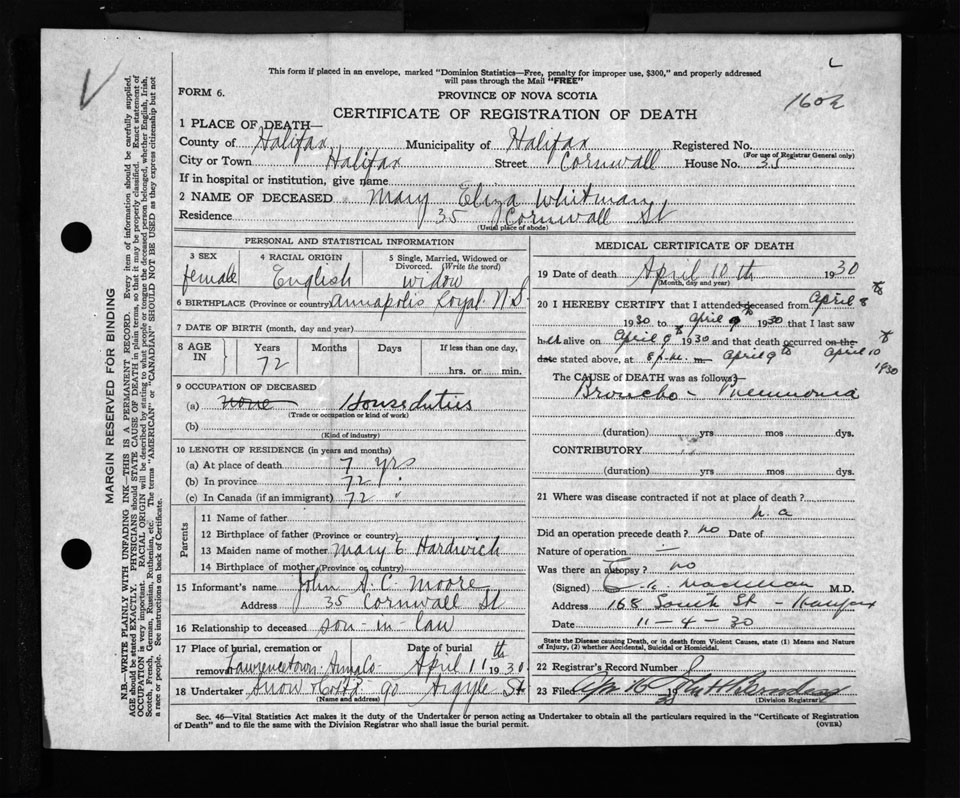 This form if placed in an envelope, marked "Dominion Statistics—Free, penalty for improper use, $300," and properly addressed
will pass through the Mail "FREE"
FORM 6.
PROVINCE OF NOVA SCOTIA
CERTIFICATE OF REGISTRATION OF DEATH
1 PLACE OF DEATH—
County of Halifax Municipality of Halifax Registered No.
(For use of Registrar General only)
City or Town Halifax Street Cornwall House No. 35
If in hospital or institution, give name
2 NAME OF DECEASED Mary Eliza Whitman
Residence 35 Cornwall St
(Usual place of abode)
PERSONAL AND STATISTICAL INFORMATION
3 SEX 4 RACIAL ORIGIN 5 Single, Married, Widowed or
Divorced. (Write the word)
female English widow
6 BIRTHPLACE (Province or country) Annapolis Royal N.S.
7 DATE OF BIRTH (month, day and year)
8 AGE IN Years Months Days If less than one day,
72 hrs. or min.
9 OCCUPATION OF DECEASED
(a) none House duties
(Trade or occupation or kind of work)
(b)
(Kind of industry)
10 LENGTH OF RESIDENCE (in years and months)
(a) At place of death 7 yrs
(b) In province 72 "
(c) In Canada (if an immigrant) 72 "
Parents
11 Name of father
12 Birthplace of father (Province or country)
13 Maiden name of mother Mary E. Hardwich
14 Birthplace of mother (Province or country)
15 Informant's name John A. C. Moore
Address 35 Cornwall St
16 Relationship to deceased son-in-law
17 Place of burial, cremation or removal Date of burial
Lawrencetown Anna Co. April 11th 1930
18 Undertaker Snow & Co Ltd 90 Argyle St
(Name and address)
MEDICAL CERTIFICATE OF DEATH
19 Date of death April 10th 1930
(Month, day and year)
20 I HEREBY CERTIFY that I attended deceased from April 8th
1930 to April 9th 1930 that I last saw
her alive on April 9th 1930 and that death occurred on the
date stated above, at m. April 9th April 10th
1930
The CAUSE of DEATH was as follows:
Broncho-Pneumonia
(duration) yrs mos dys.
CONTRIBUTORY
(duration) yrs mos dys.
21 Where was disease contracted if not at place of death?
n.a
Did an operation precede death? no Date of
Nature of operation —
Was there an autopsy? no
(Signed) M.D.
Address 168 South St - Halifax
Date 11-4-30
State the Disease causing Death, or in death from Violent Causes, state (1) Means and Nature
of Injury, (2) whether Accidental, Suicidal or Homicidal.
22 Registrar's Record Number
23 Filed Apr 16 19
(Division Registrar)
Sec. 46—Vital Statistics Act makes it the duty of the Undertaker or person acting as Undertaker to obtain all the particulars required in the "Certificate of Registration
of Death" and to file the same with the Division Registrar who shall issue the burial permit.
(OVER)
MARGIN RESERVED FOR BINDING
N.B.—WRITE PLAINLY WITH UNFADING INK—THIS IS A PERMANENT RECORD. Every item of information should be carefully supplied.
AGE should be stated EXACTLY. PHYSICIANS should STATE CAUSE OF DEATH in plain terms, so that it may be properly classified. Exact statement of
OCCUPATION is very important. RACIAL ORIGIN will be described by stating to what people or tongue the deceased person belonged, whether English, Irish,
Scotch, French, German, Russian, Ruthenian, etc. The terms "AMERICAN" or "CANADIAN" SHOULD NOT BE USED as they express citizenship but not
a race or people. See instructions on back of Certificate.